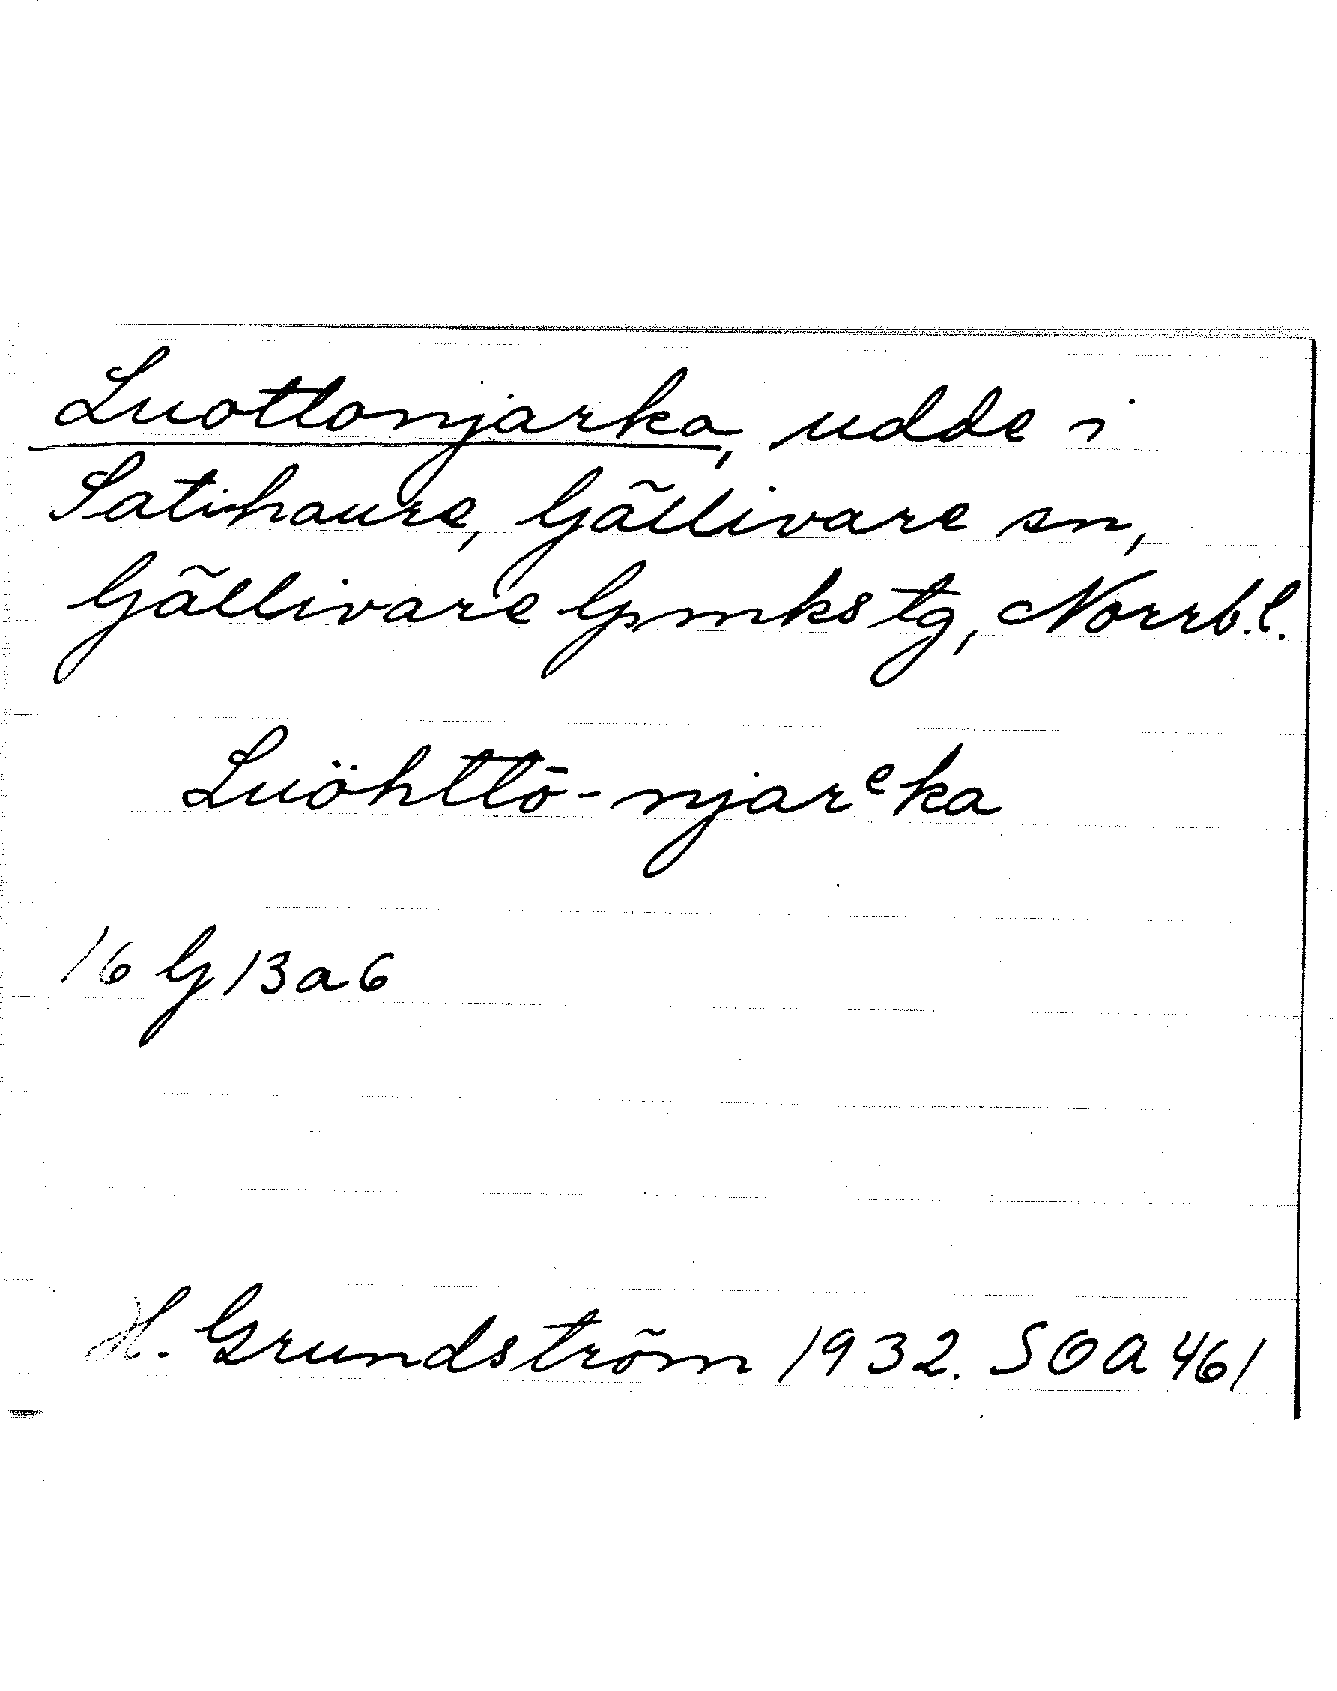 Luottonjarka, udde i
Satihaure, Gällivare sn,
Gällivare lpmks tg, Norrb.l.
Luöhttō-njarᵉka
16 G 13 a 6
H. Grundström 1932. SOA 461